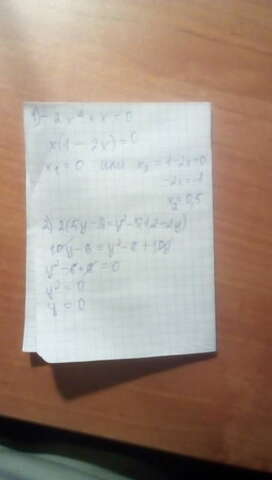 1) -2x²+x=0
x(1-2x)=0
x₁=0 или x₂=1-2x=0
-2x=-1
x₂=0,5
2) 2(5y-3=y²-5(2-2y)
10y-6=y²-6+10y
y²-6+6=0
y²=0
y=0